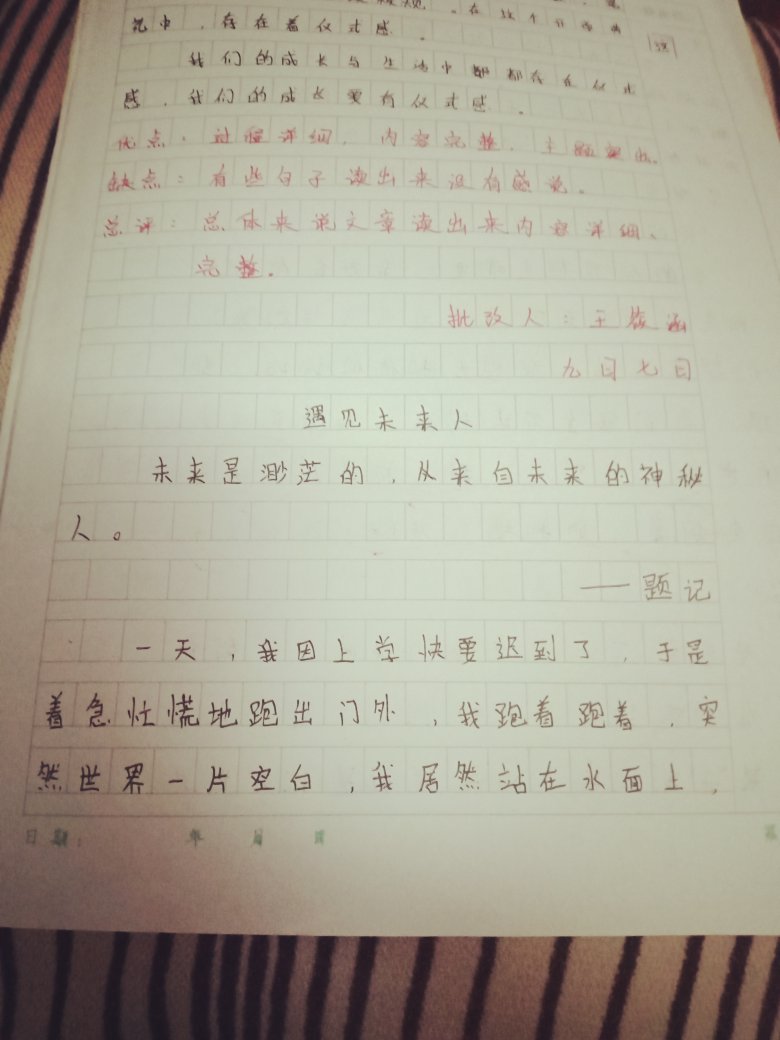 规。在这个
记中，存在着仪式感。
我们的成长与生活中都存在仪式
感，我们的成长要有仪式感。
优点：过程详细，内容完整，主题突出。
缺点：有些句子读出来没有感觉。
总评：总体来说文章读出来内容详细、
完整。
批改人：王筱涵
九日七日
遇见未来人
未来是渺茫的，从来自未来的神秘
人。
——题记
一天，我因上学快要迟到了，于是
着急忙慌地跑出门外，我跑着跑着，突
然世界一片空白，我居然站在水面上，
日期： 年 月 日 第